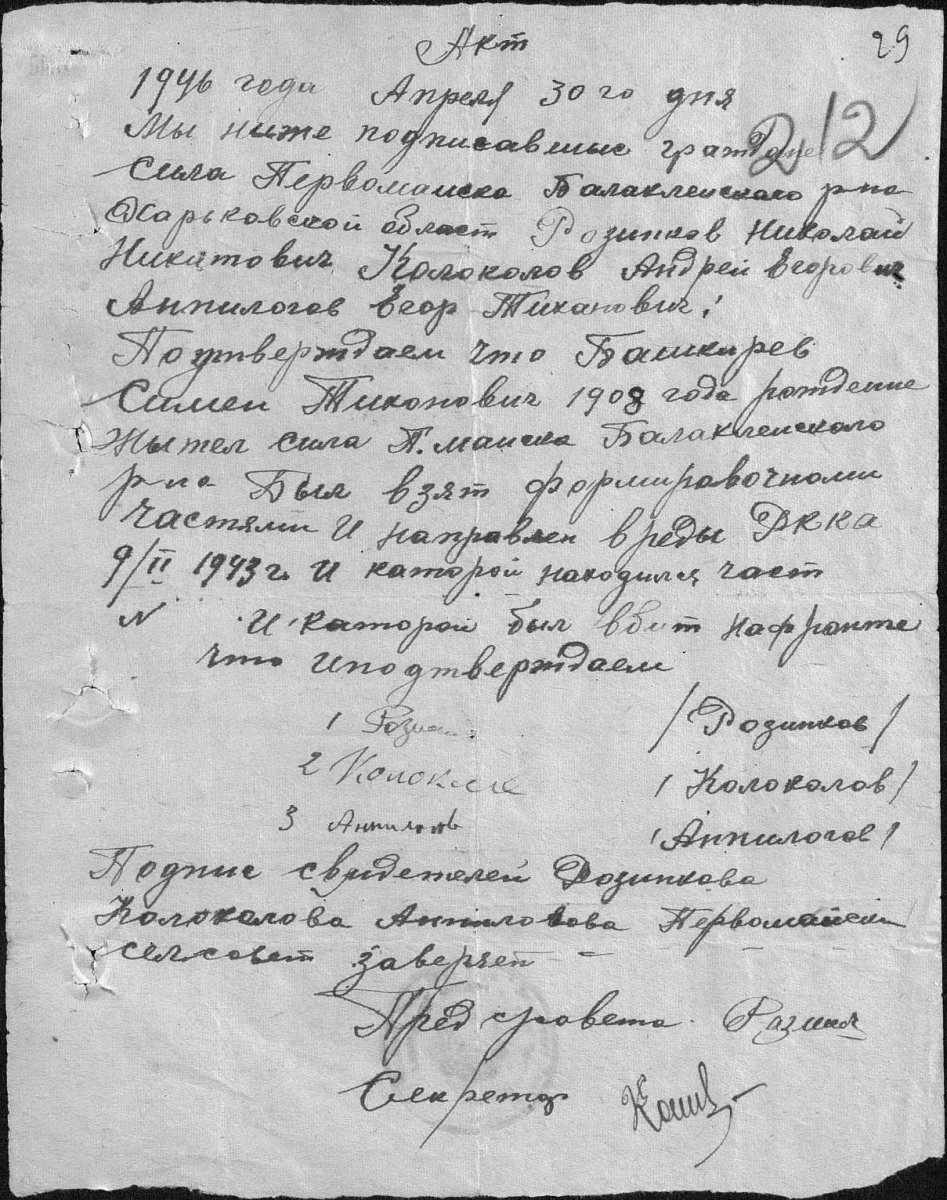 29
Акт
1946 года Апреля 30 го дня
212
Мы ниже подписавшыс граждане
Сила Первомайска Балаклеиского р на
Харьковской област Розинков Николай
Никитович Колоколов Андрей Егорович
Анпилогов Егор Тиханович!
Потверждаем что Башкирев
Симен Тихонович 1908 года рождение
Жытел сила П. маиска Балаклеиского
р на Был взят формировочноми
частями И направлен вреды РККА
9/II 1943 г. И каторой находился част
N И каторой был вбит нафронте
что Иподтверждаем
1 /Розинков/
2 /Колоколов/
3 /Анпилогов/
Подпис свидетелей Розинкова
Колоколова Анпиловова Первомайски
селсовет заверяет
Пред с/совета
Секретар